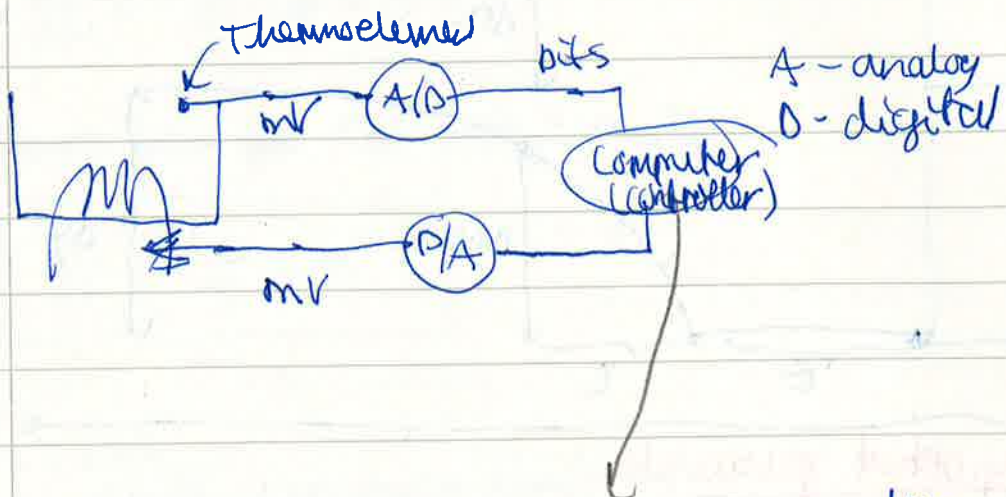 Thermoelemed
mV
A/D
bits
A - analog
D - digital
Computer
(controller)
D/A
mV